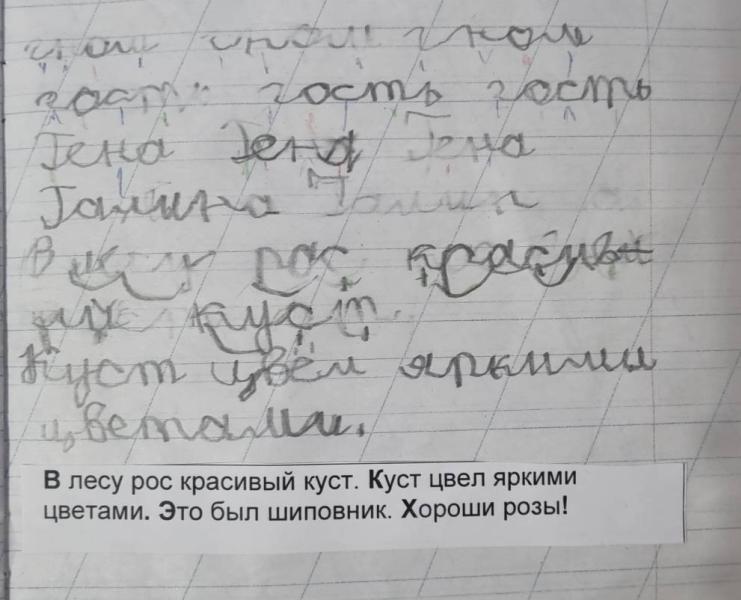 гном гном гном
гость гость гость
Гена Гена Гена
Галина Галин
В рос красивы
куст.
Куст цвёл яркими
цветами.
В лесу рос красивый куст. Куст цвел яркими
цветами. Это был шиповник. Хороши розы!